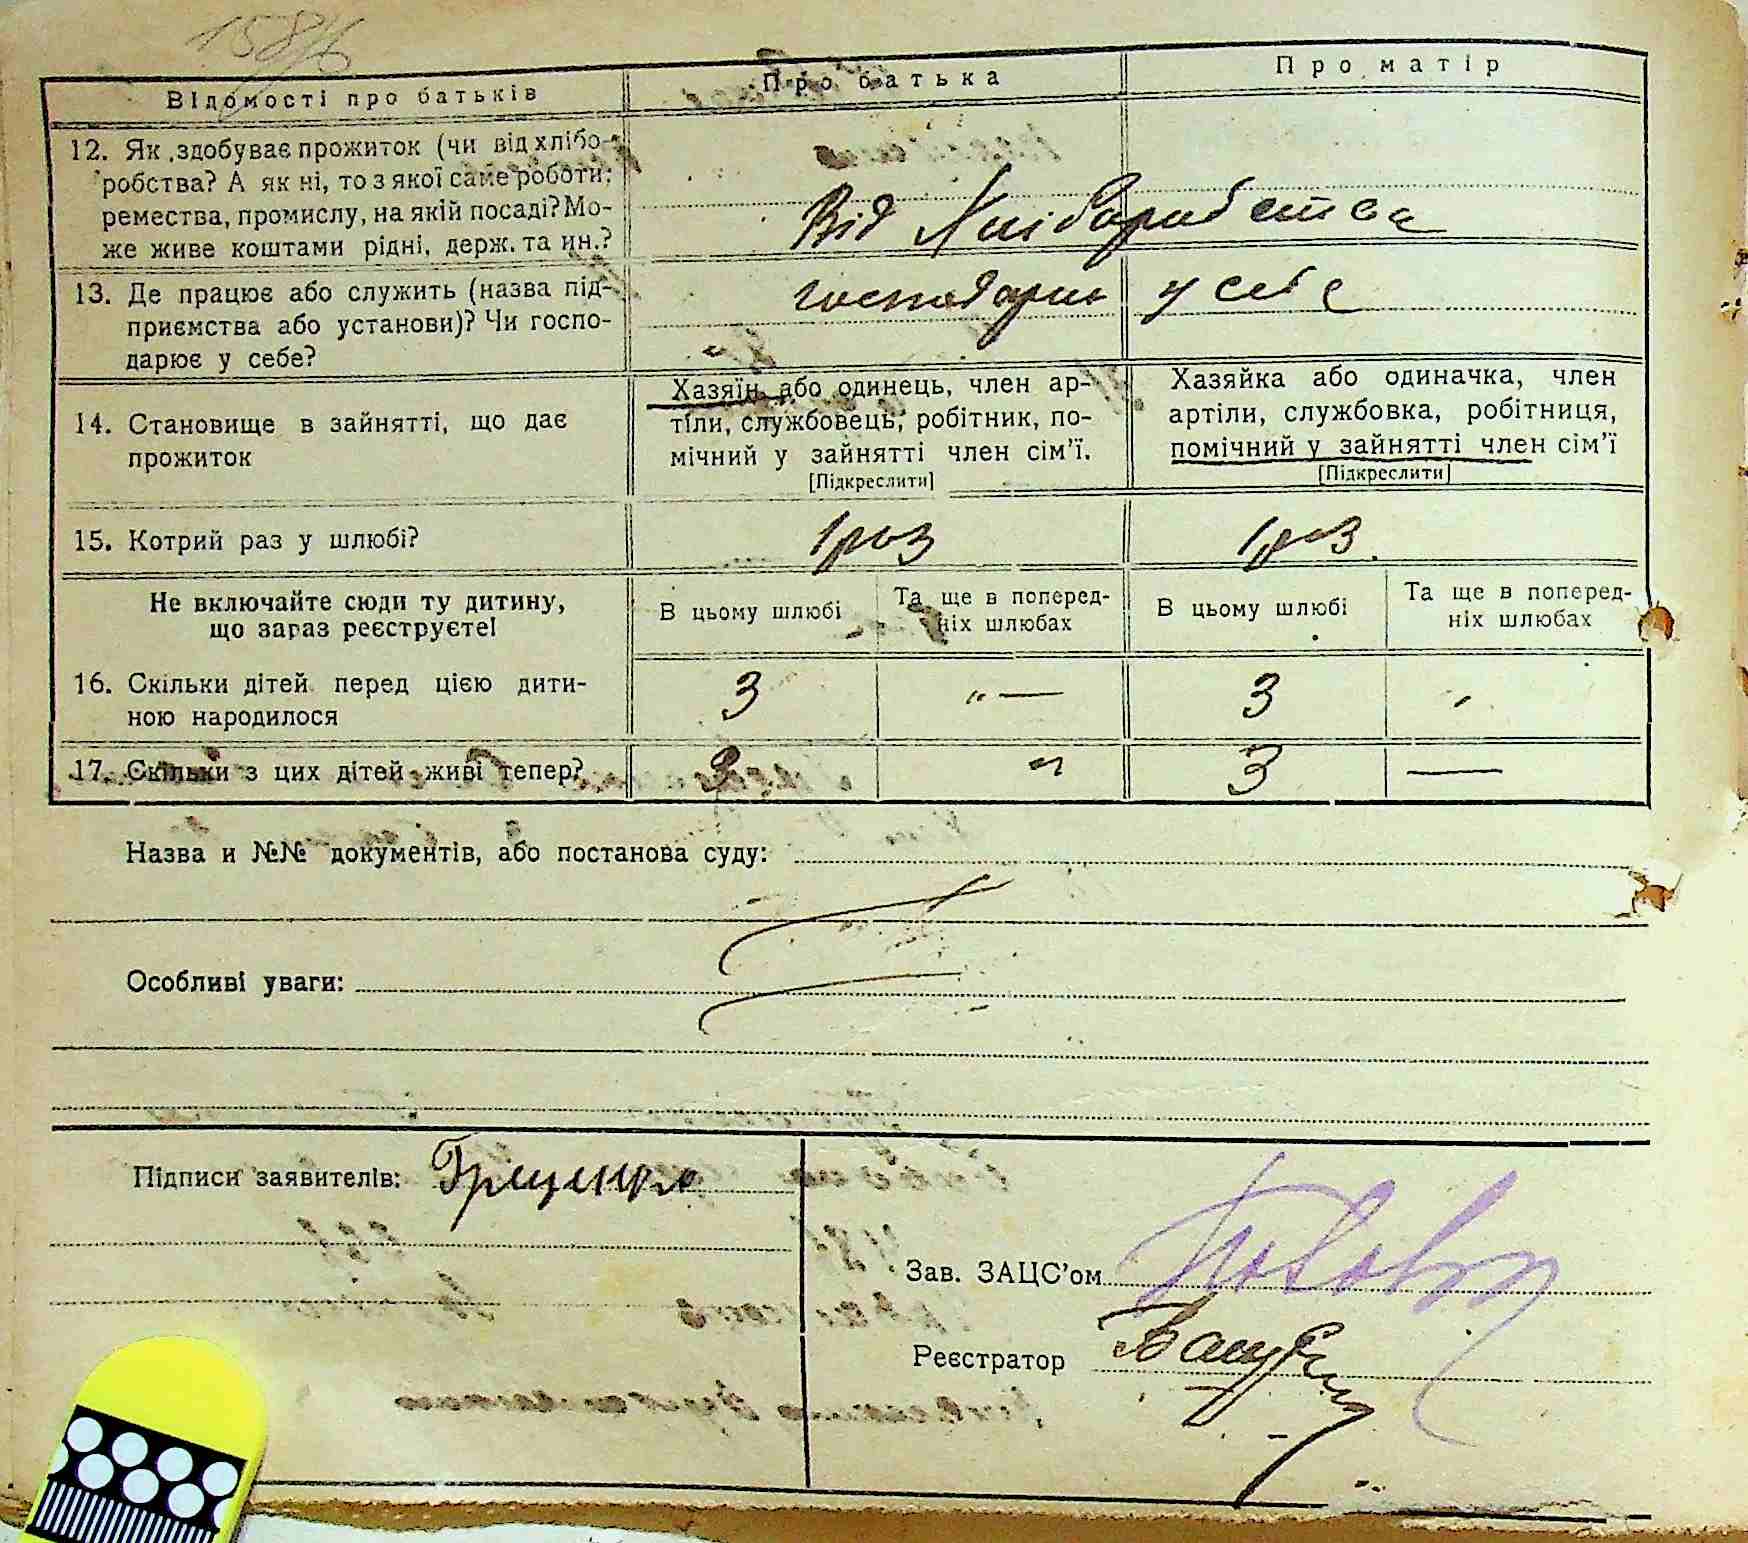 158
Відомості про батьків
Про батька
Про матір
12. Як здобуває прожиток (чи від хлібо-
робства? А як ні, то з якої саме роботи:
ремества, промислу, на якій посаді? Мо-
же живе коштами рідні, держ. та ин.?
Від Хліборобства
13. Де працює або служить (назва під-
приємства або установи)? Чи госпо-
дарює у себе?
господарш у себе
14. Становище в зайнятті, що дає
прожиток
Хазяїн або одинець, член ар-
тіли, службовець, робітник, по-
мічний у зайнятті член сім'ї.
[Підкреслити]
Хазяйка або одиначка, член
артіли, службовка, робітниця,
помічний у зайнятті член сім'ї
[Підкреслити]
15. Котрий раз у шлюбі?
1 раз
1 раз
Не включайте сюди ту дитину,
що зараз реєструєте!
В цьому шлюбі
Та ще в поперед-
ніх шлюбах
В цьому шлюбі
Та ще в поперед-
ніх шлюбах
16. Скільки дітей перед цією дити-
ною народилося
3
"—
3
17. Скільки з цих дітей живі тепер?
"
3
—
Назва и №№ документів, або постанова суду:
Особливі уваги:
Підписи заявителів: Грищенко
Зав. ЗАЦС'ом
Реєстратор